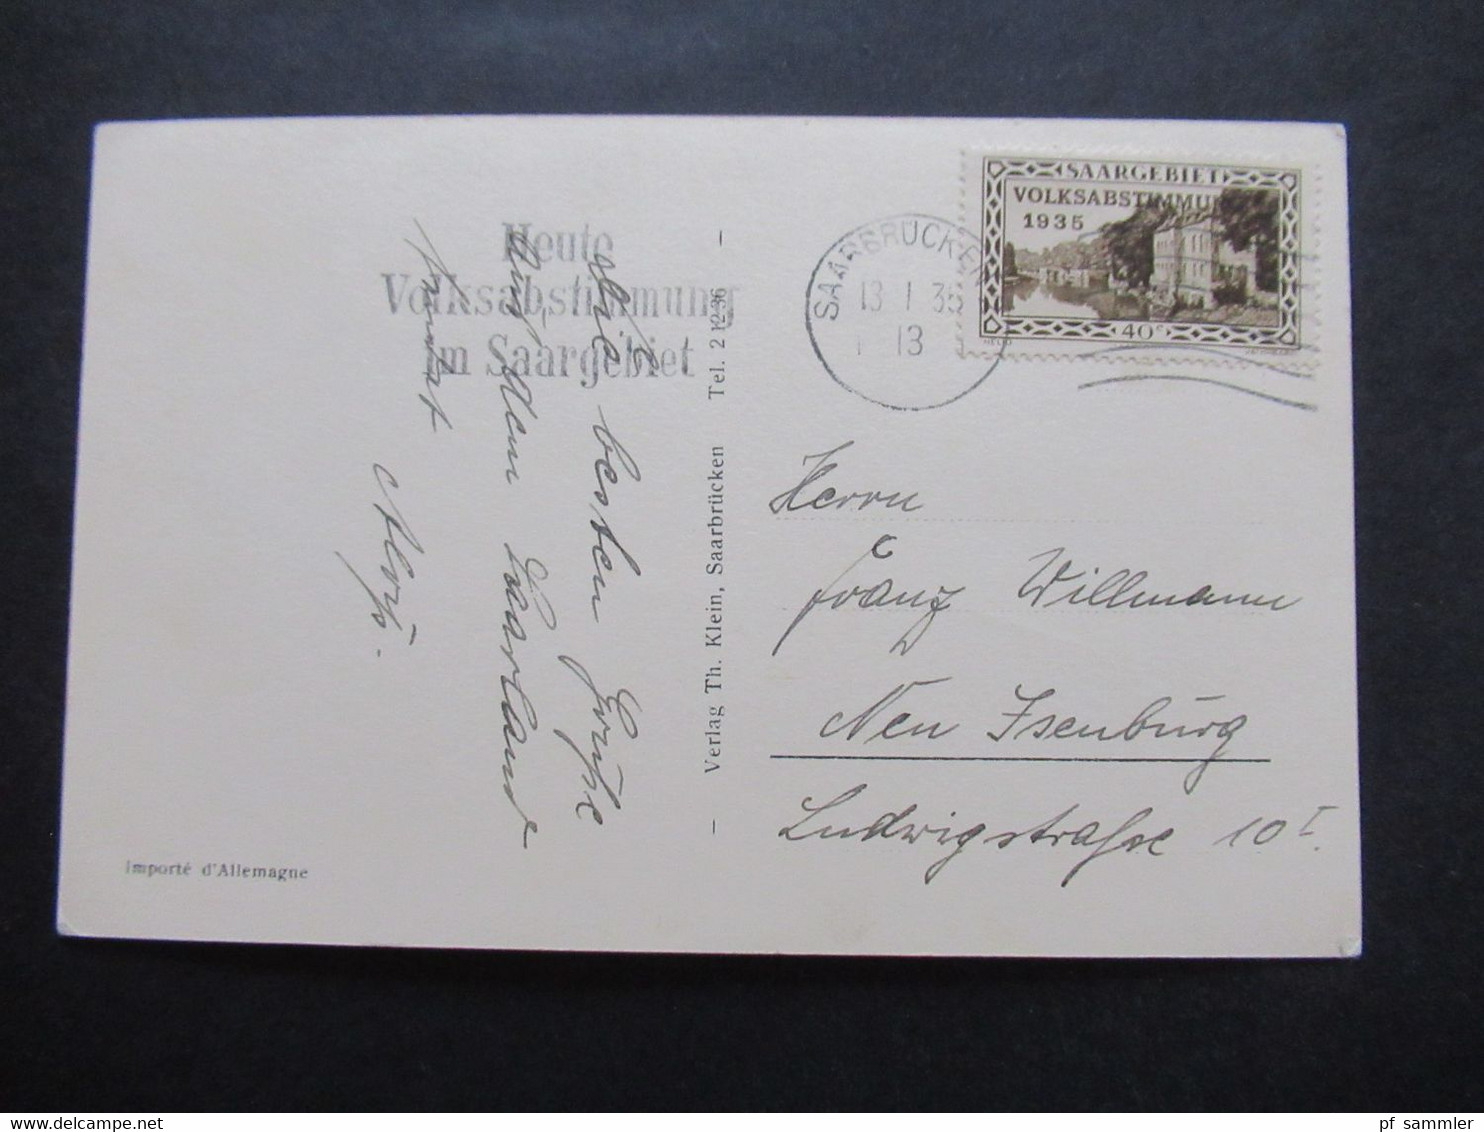 Heute
Volksabstimmung
im Saargebiet
SAARGEBIET
VOLKSABSTIMMU
1935
40c
SAARBRÜCKEN
13 1 35
13
Die besten Grüße
aus dem Saarlande
Alois.
Verlag Th. Klein, Saarbrücken Tel. 2 12 36
Herrn
Franz Willmann
Neu Isenburg
Ludwigstraße 10 I
Importé d'Allemagne
pf sammler